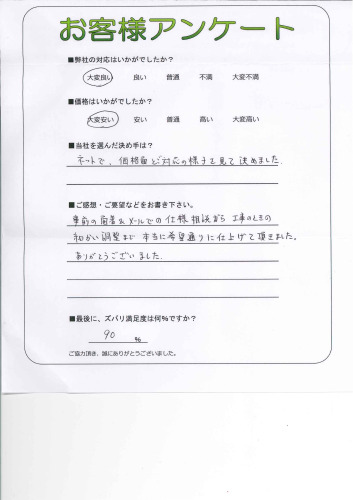 お客様アンケート
■弊社の対応はいかがでしたか？
大変良い 良い 普通 不満 大変不満
■価格はいかがでしたか？
大変安い 安い 普通 高い 大変高い
■当社を選んだ決め手は？
ネットで、価格面と対応の様子を見て決めました。
■ご感想・ご要望などをお書き下さい。
事前の電話&メールでの仕様相談から 工事のときの
細かい調整まで 本当に希望通りに仕上げて頂きました。
ありがとうございました。
■最後に、ズバリ満足度は何%ですか？
90 %
ご協力頂き、誠にありがとうございました。